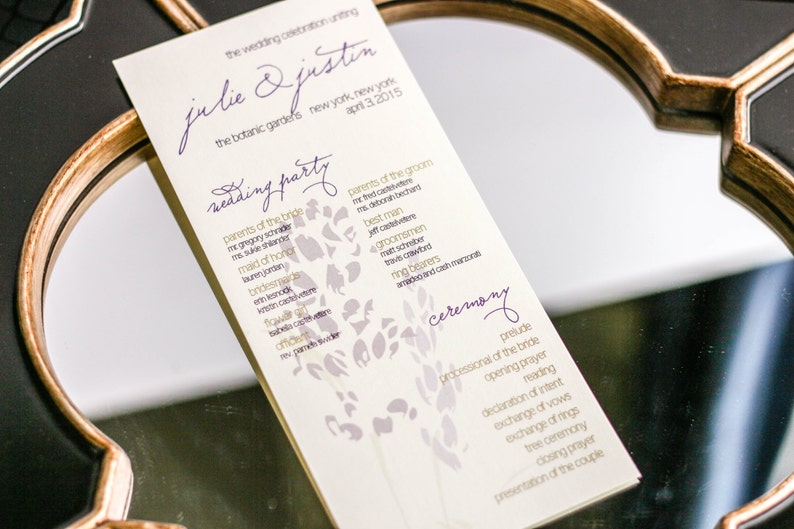 the wedding celebration uniting
julie & justin
the botanic gardens new york, new york
april 3, 2015
wedding party
parents of the bride
mr. gregory schrader
ms. sukie shilander
maid of honor
lauren jordan
bridesmaids
erin lesnock
kristin castelvetere
flower girl
isabella castelvetere
officiant
rev. pamela swider
parents of the groom
mr. fred castelvetere
ms. deborah bechard
best man
jeff castelvetere
groomsmen
matt schreiber
travis crawford
ring bearers
amadeo and cash marzorati
ceremony
prelude
processional of the bride
opening prayer
reading
declaration of intent
exchange of vows
exchange of rings
tree ceremony
closing prayer
presentation of the couple